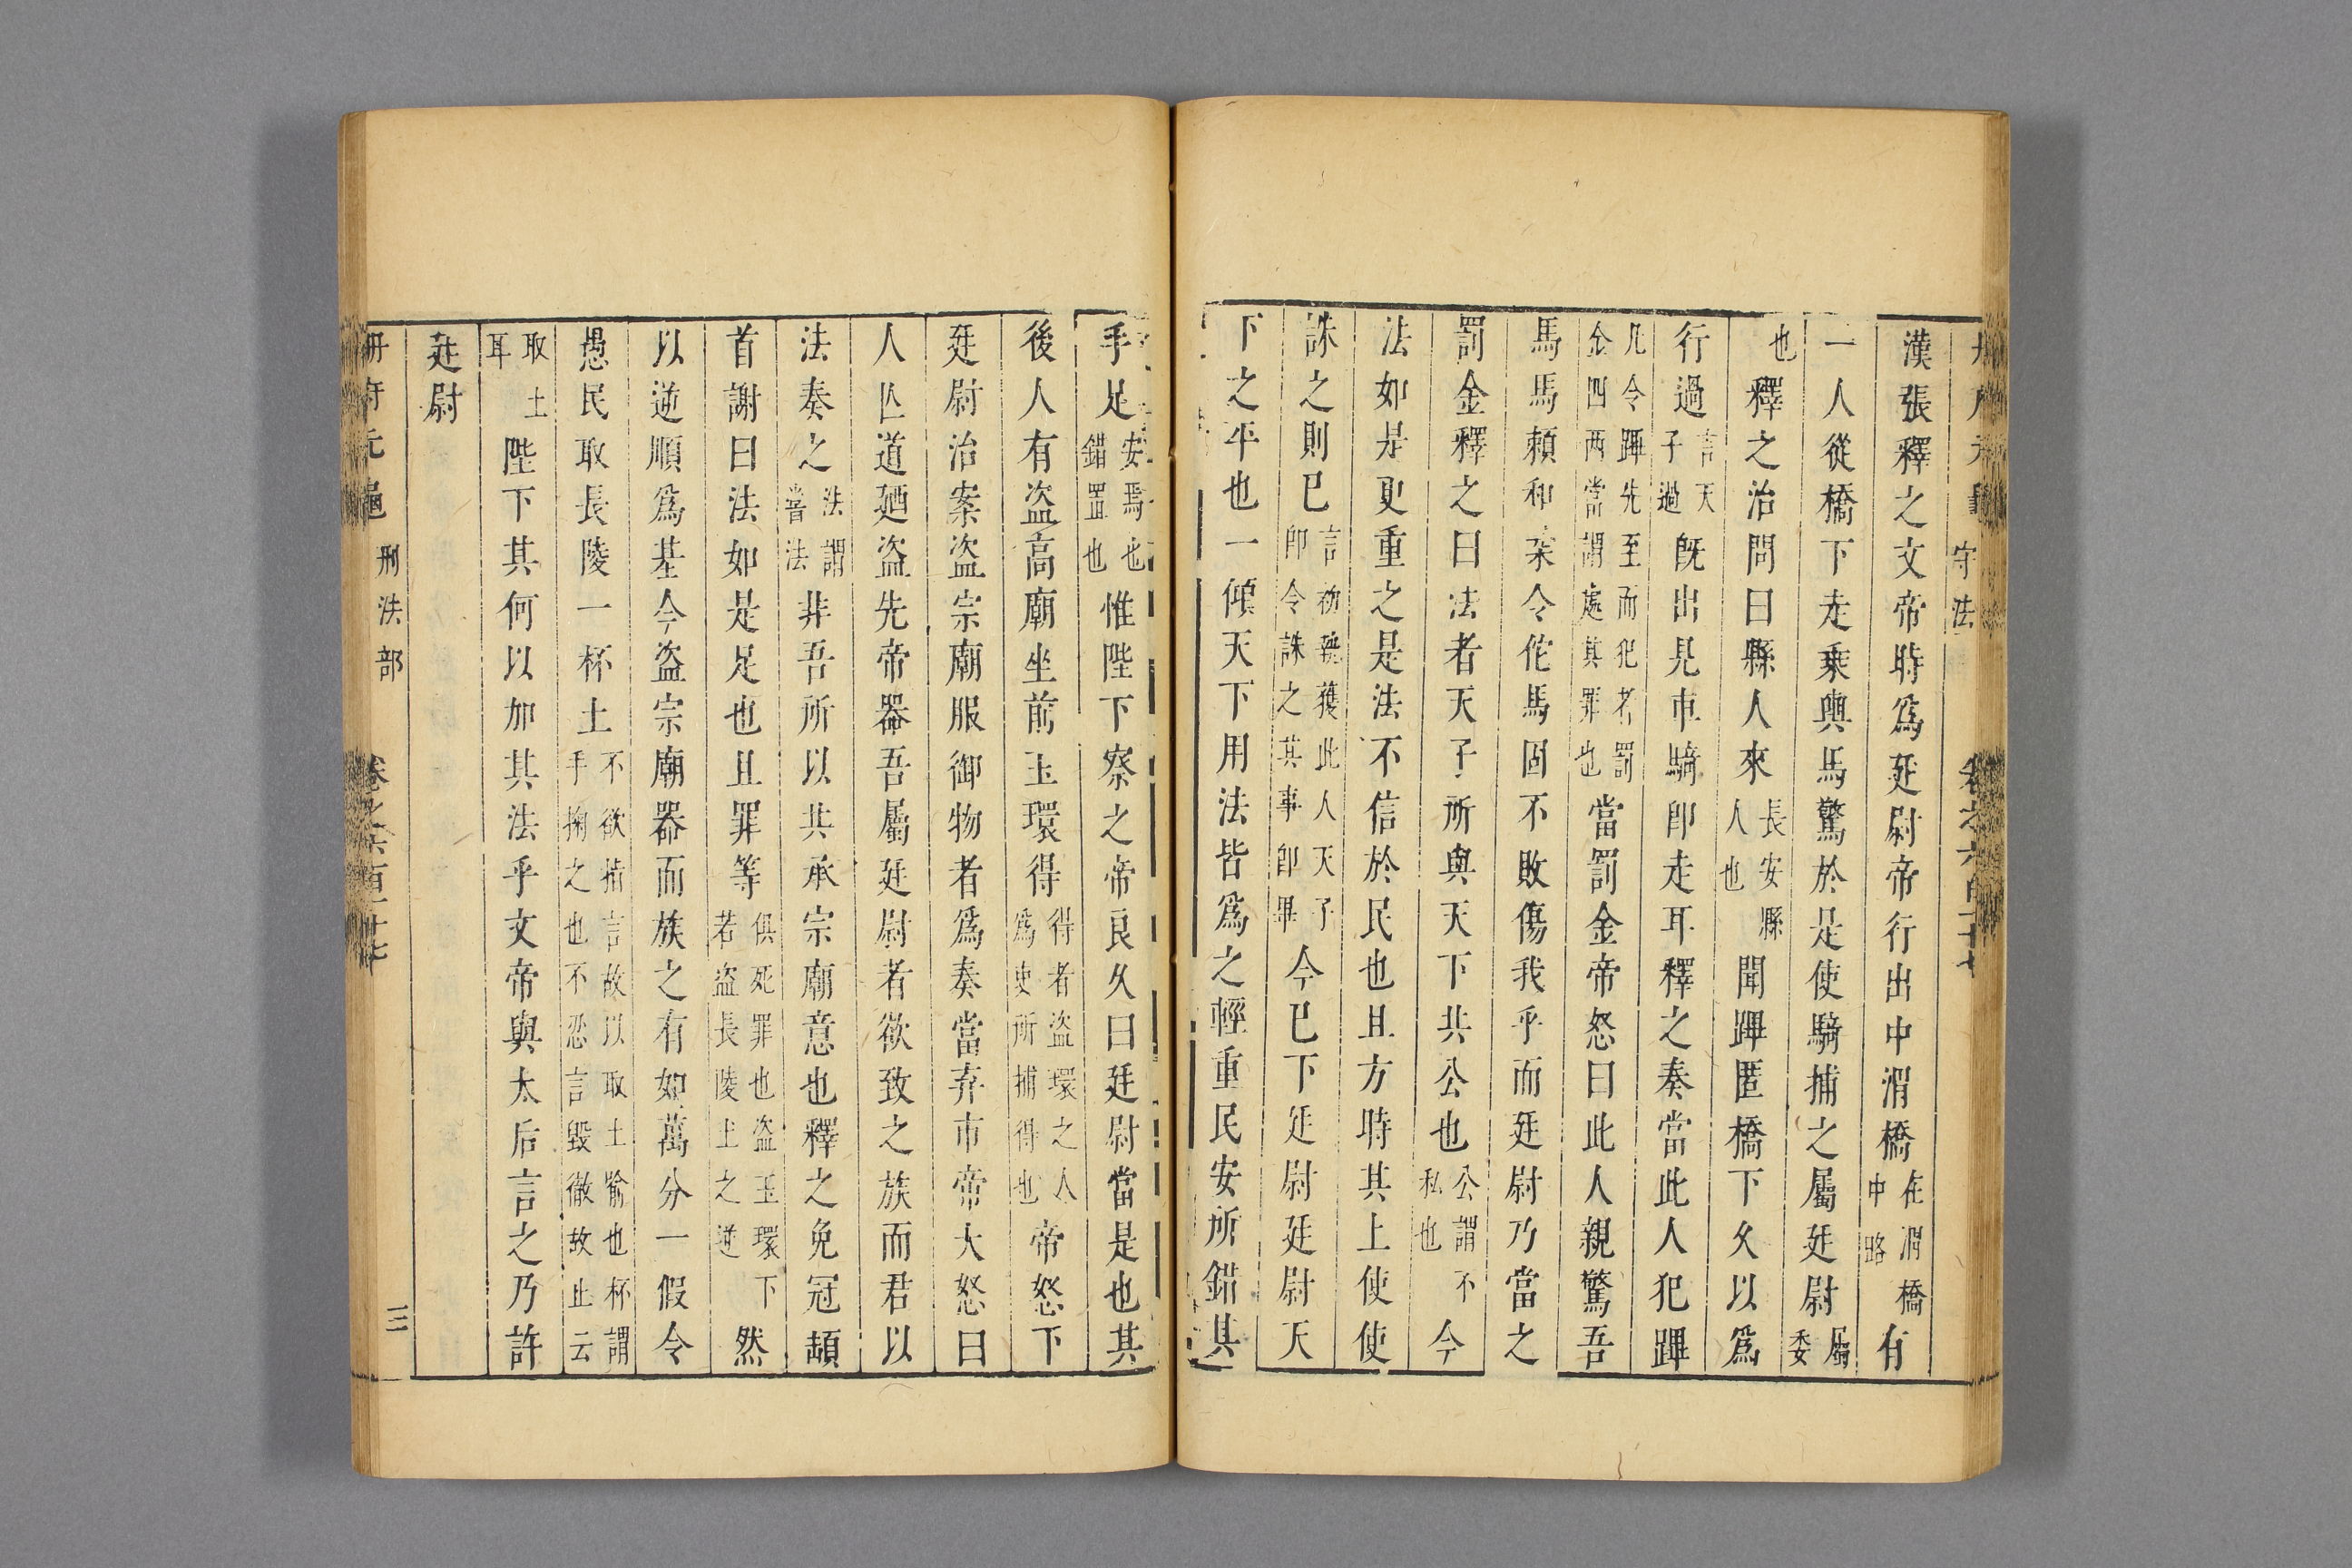 守法
漢張釋之文帝時爲廷尉帝行出中渭橋在渭橋中路有
一人從橋下走乗輿馬驚於是使騎捕之屬廷尉屬委
也釋之治問曰縣人來長安縣人也聞蹕匿橋下久以爲
行過言天子過既出見車騎卽走耳釋之奏當此人犯蹕
當罰金帝怒曰此人親驚吾
凡令蹕先至而犯者罰金四两當謂處其罪也
馬馬頼和柔令佗馬固不敗傷我乎而廷尉乃當之
罰金釋之曰法者天子所與天下共公也公謂不私也今
法如是更重之是法不信於民也且方時其上使使
誅之則已言初執獲此人天子卽令誅之其事卽畢今已下廷尉廷尉天
下之平也一傾天下用法皆爲之輕重民安所錯其
手足安焉也錯置也惟陛下察之帝良久曰廷尉當是也其
後人有盗高廟坐前玉環得得者盗環之人爲吏所捕得也帝怒下
廷尉治案盗宗廟服御物者爲奏當弃市帝大怒曰
人亾道廼盗先帝器吾屬廷尉者欲致之族而君以
法奏之法謂常法非吾所以共承宗廟意也釋之免冠頓
首謝曰法如是足也且罪等俱死罪也盗玉環不若盗長陵土之逆然
以逆順爲基今盗宗廟器而族之有如萬分一假令
愚民取長陵一杯土不欲指言故以取土喻也杯謂手掬之也不忍言毀徹故止云
取土耳陛下其何以加其法乎文帝與太后言之乃許
廷尉
冊府元龜 刑法部 卷之六百一十七 三